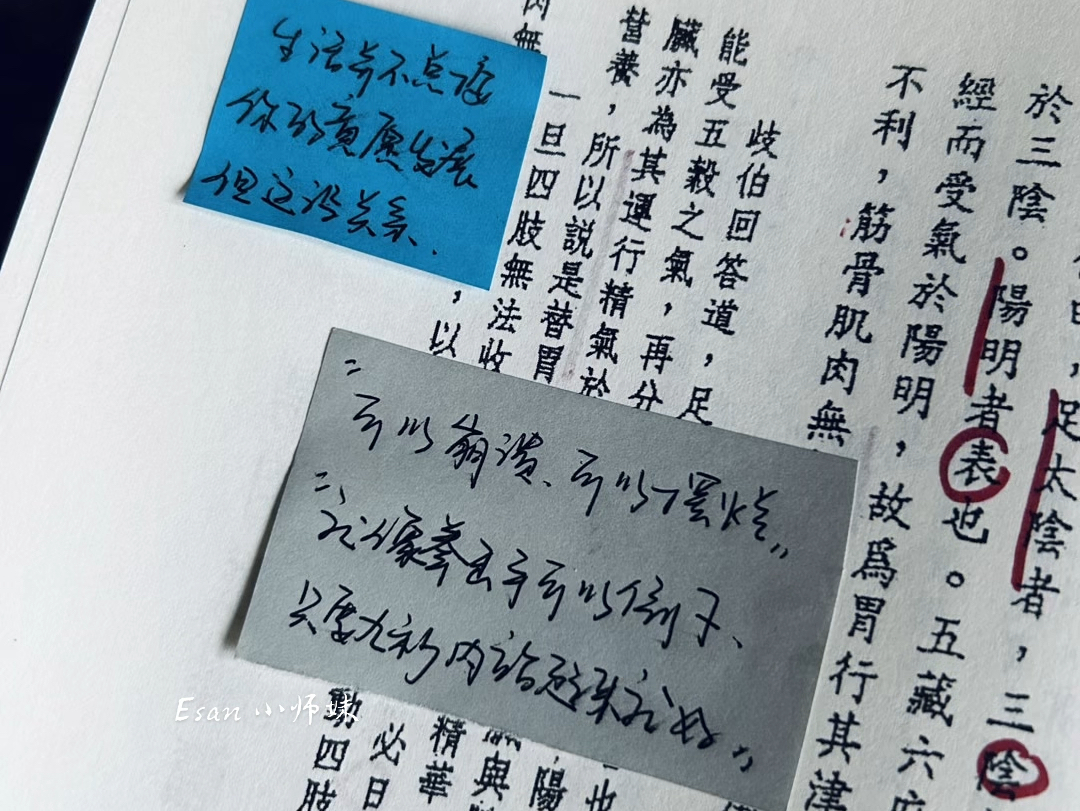 生活并不总该
你的意愿发展
但这没关系.
"可以崩溃、可以摆烂"
"就像拳击手可以倒下、
只要九秒内站起来就好"
Esan 小师妹
於三陰。陽明者表也。五藏六
經而受氣於陽明,故爲胃行其津
不利,筋骨肌肉無
歧伯回答道,足
能受五穀之氣,再分
臟亦為其運行精氣於
營養,所以說是替胃
一旦四肢無法收
肉無
,以
足太陰者,三陰
也
陽
與
精華
必日
動四肢